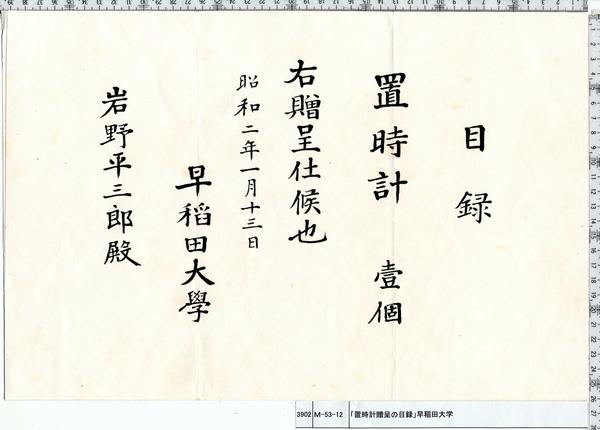 目録
置時計 壹個
右贈呈仕候也
昭和二年一月十三日
早稲田大學
岩野平三郎殿
3902 M-53-12 「置時計贈呈の目録」早稲田大学